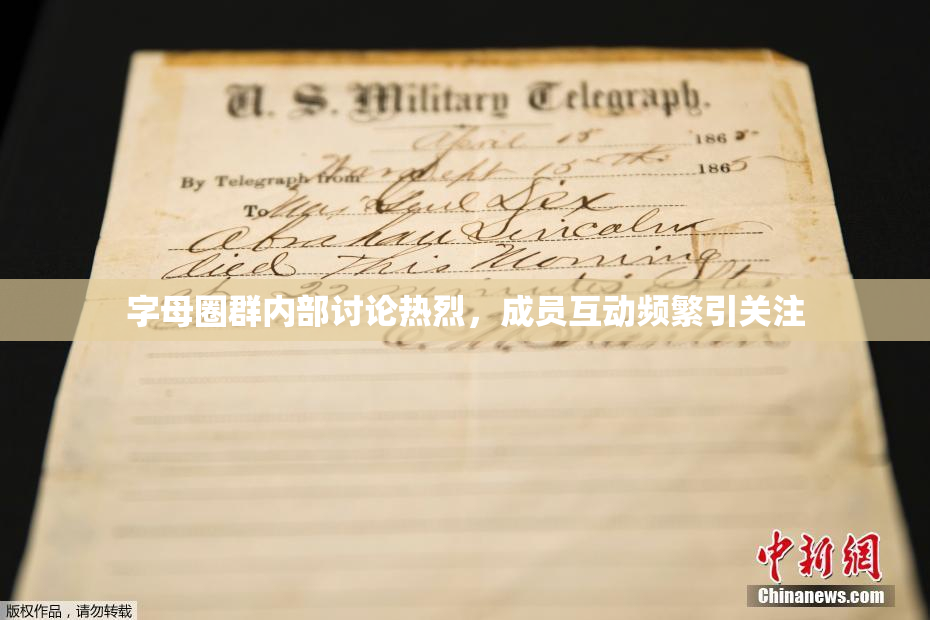 U. S. Military Telegraph.
April 15 1865
By Telegraph from War Dept 15th 1865
To Maj Genl Dix
Abraham Lincoln
died This Morning
at 22 minutes after
字母圈群内部讨论热烈，成员互动频繁引关注
E. M. Stanton
中新网
Chinanews.com
版权作品，请勿转载